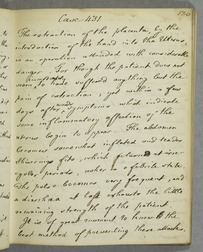 Case 431
The extraction of the placenta, by the
introduction of the hand into the Uterus,
is an operation attended with considerable
danger. For though the patient does not
seem to have suffered any thing but the
pain of extraction, yet within a few
days after, symptoms which indicate
some inflammatory affection of the
uterus begin to appear. The abdomen
becomes somewhat inflated and tender
Shiverings fits, which return at irre-
gular periods, usher in a febrile state.
The pulse becomes very frequent, and
a diarrhœa at last exhausts the little
remaining strength of the patient.
It is of great moment to know the
best method of preventing these attacks.